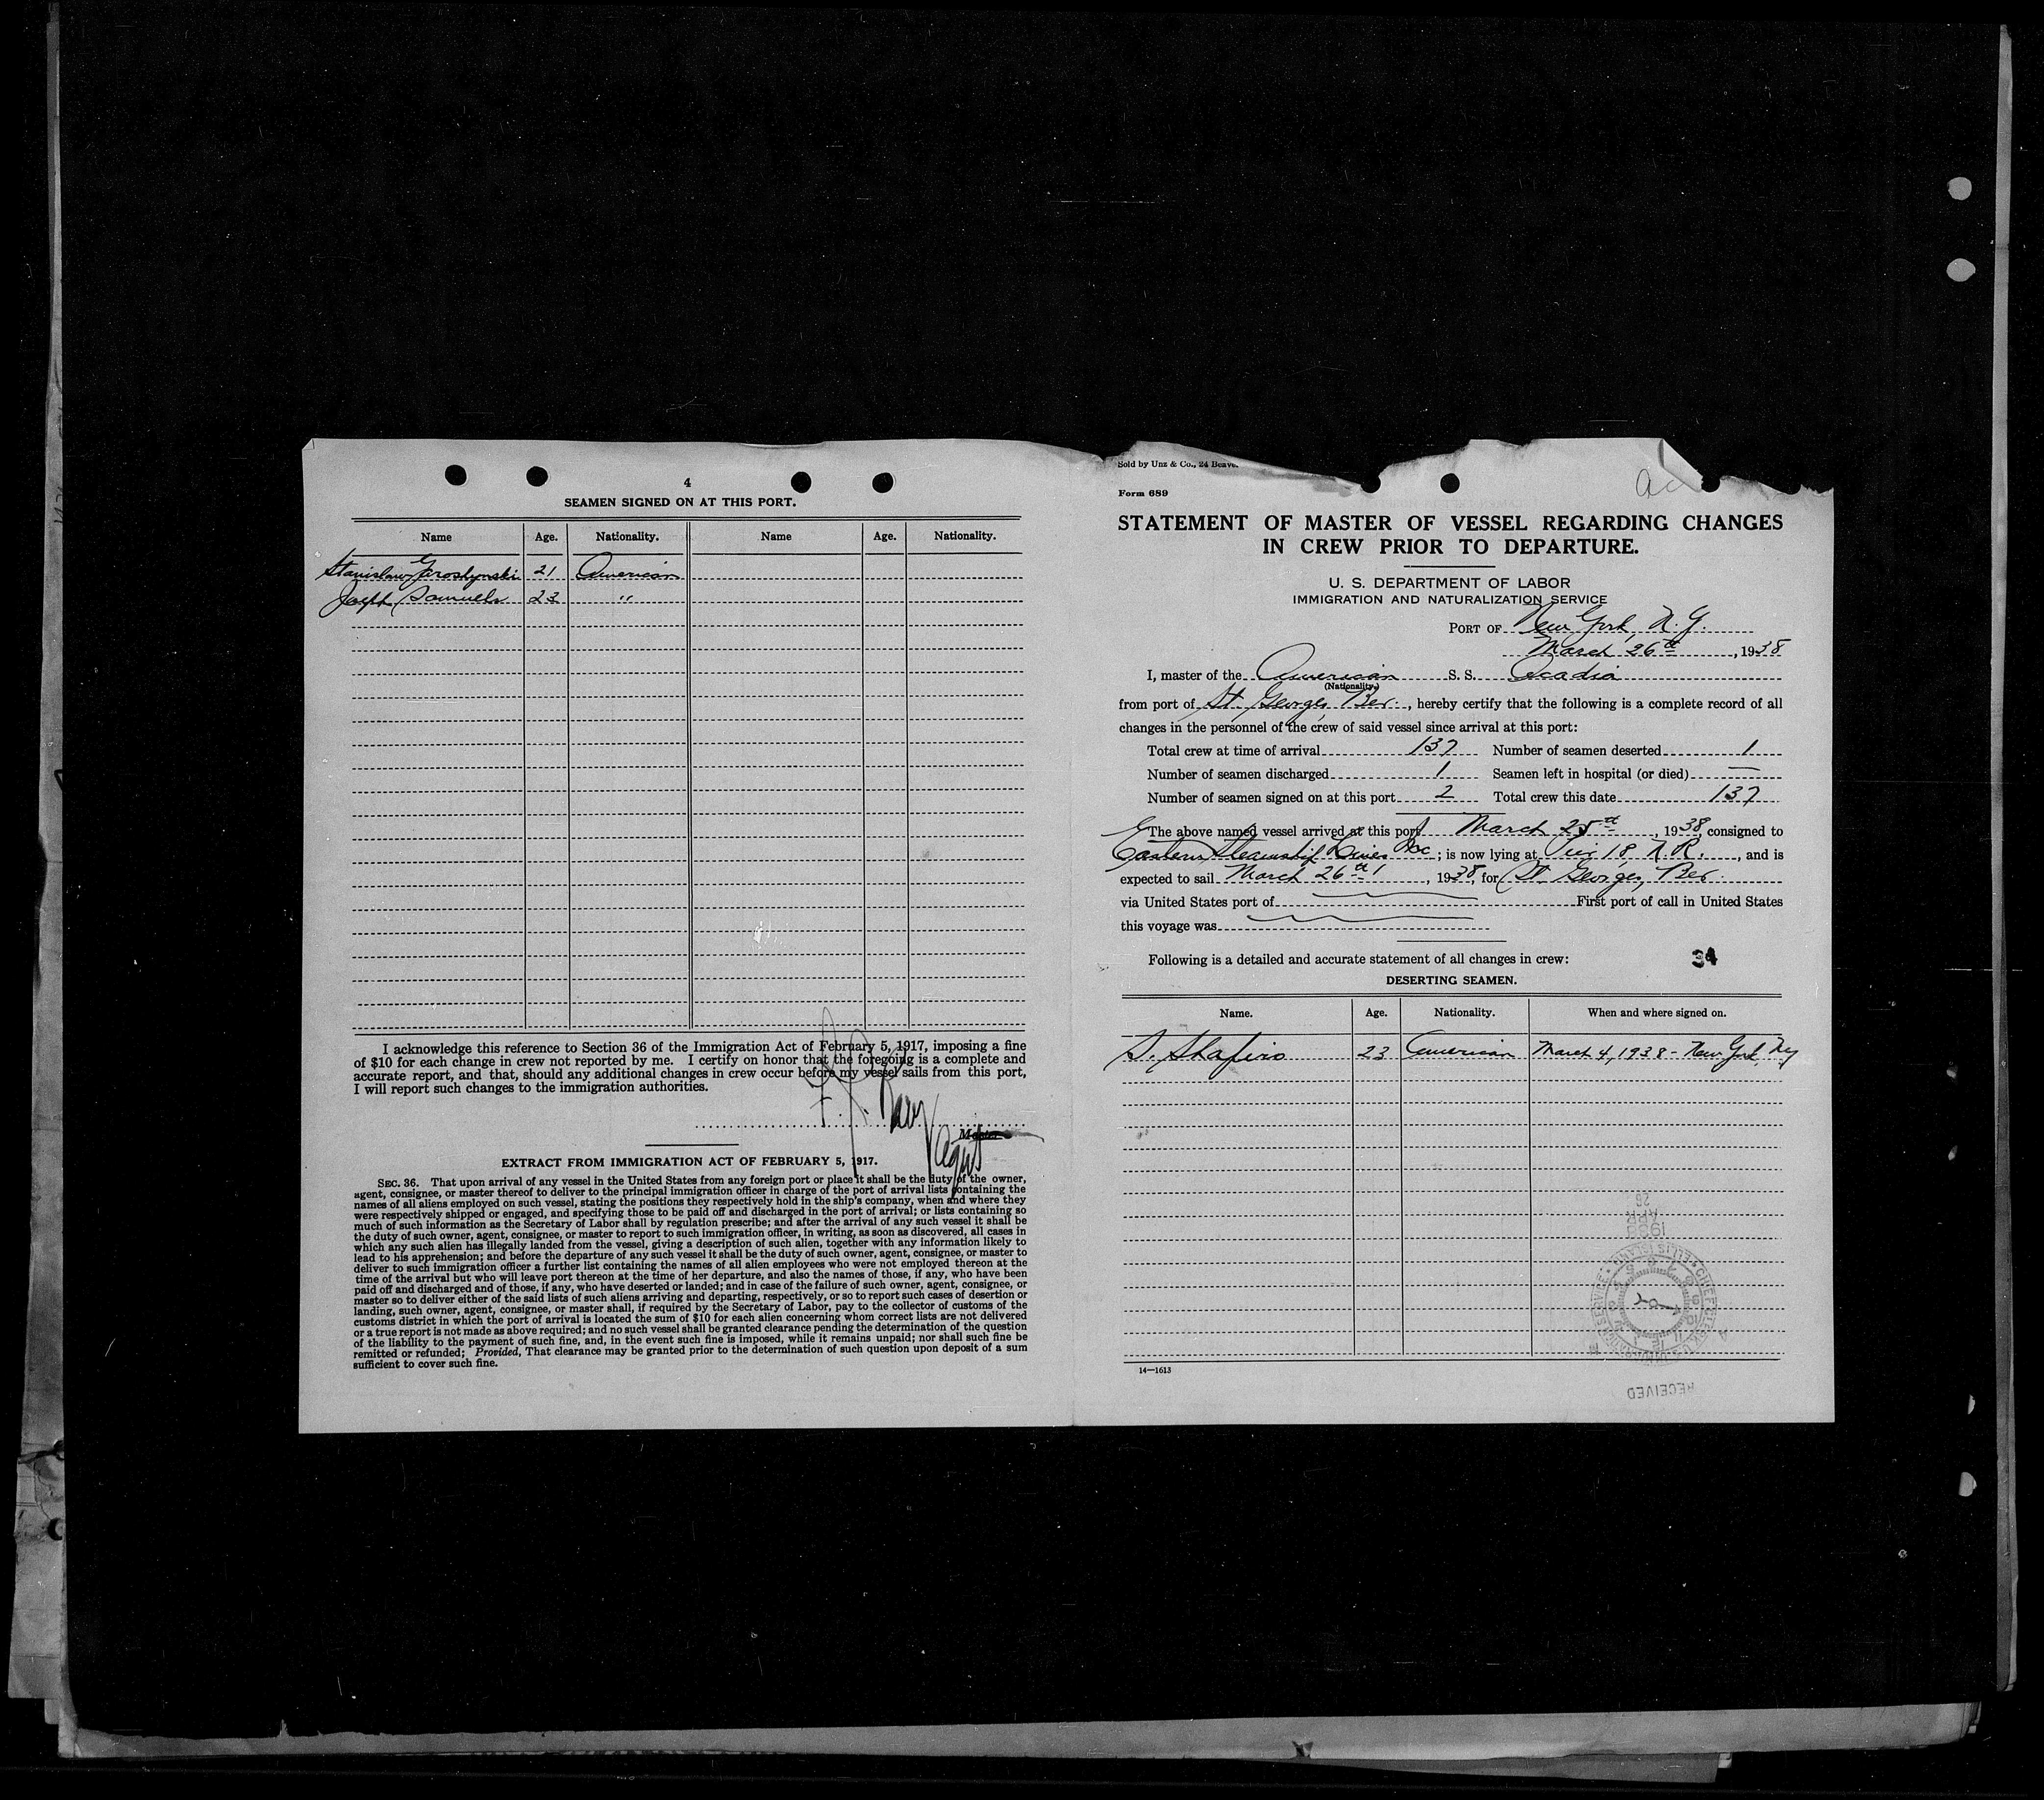 4
SEAMEN SIGNED ON AT THIS PORT.
Name Age. Nationality. Name Age. Nationality.
Stanislaw 21 American
Joseph Samuels 23 "
I acknowledge this reference to Section 36 of the Immigration Act of February 5, 1917, imposing a fine
of $10 for each change in crew not reported by me. I certify on honor that the foregoing is a complete and
accurate report, and that, should any additional changes in crew occur before my vessel sails from this port,
I will report such changes to the immigration authorities.
Master
Agent
EXTRACT FROM IMMIGRATION ACT OF FEBRUARY 5, 1917.
SEC. 36. That upon arrival of any vessel in the United States from any foreign port or place it shall be the duty of the owner,
agent, consignee, or master thereof to deliver to the principal immigration officer in charge of the port of arrival lists containing the
names of all aliens employed on such vessel, stating the positions they respectively hold in the ship's company, when and where they
were respectively shipped or engaged, and specifying those to be paid off and discharged in the port of arrival; or lists containing so
much of such information as the Secretary of Labor shall by regulation prescribe; and after the arrival of any such vessel it shall be
the duty of such owner, agent, consignee, or master to report to such immigration officer, in writing, as soon as discovered, all cases in
which any such alien has illegally landed from the vessel, giving a description of such alien, together with any information likely to
lead to his apprehension; and before the departure of any such vessel it shall be the duty of such owner, agent, consignee, or master to
deliver to such immigration officer a further list containing the names of all alien employees who were not employed thereon at the
time of the arrival but who will leave port thereon at the time of her departure, and also the names of those, if any, who have been
paid off and discharged and of those, if any, who have deserted or landed; and in case of the failure of such owner, agent, consignee, or
master so to deliver either of the said lists of such aliens arriving and departing, respectively, or so to report such cases of desertion or
landing, such owner, agent, consignee, or master shall, if required by the Secretary of Labor, pay to the collector of customs of the
customs district in which the port of arrival is located the sum of $10 for each alien concerning whom correct lists are not delivered
or a true report is not made as above required; and no such vessel shall be granted clearance pending the determination of the question
of the liability to the payment of such fine, and, in the event such fine is imposed, while it remains unpaid; nor shall such fine be
remitted or refunded; Provided, That clearance may be granted prior to the determination of such question upon deposit of a sum
sufficient to cover such fine.
Sold by Unz & Co., 24 Beave
Form 689
STATEMENT OF MASTER OF VESSEL REGARDING CHANGES
IN CREW PRIOR TO DEPARTURE.
U. S. DEPARTMENT OF LABOR
IMMIGRATION AND NATURALIZATION SERVICE
PORT OF New York, N. Y.
March 26th, 1938
I, master of the American S. S. Acadia
(Nationality)
from port of St. Georges, Ber., hereby certify that the following is a complete record of all
changes in the personnel of the crew of said vessel since arrival at this port:
Total crew at time of arrival 137 Number of seamen deserted 1
Number of seamen discharged 1 Seamen left in hospital (or died) —
Number of seamen signed on at this port 2 Total crew this date 137
The above named vessel arrived at this port March 25th, 1938, consigned to
Eastern Steamship Lines Inc; is now lying at Pier 18, N. R., and is
expected to sail March 26th, 1938, for St. Georges, Ber.
via United States port of First port of call in United States
this voyage was
Following is a detailed and accurate statement of all changes in crew: 34
DESERTING SEAMEN.
Name. Age. Nationality. When and where signed on.
S. Shapiro 23 American March 4, 1938 - New York, NY
1938
APR
26
RECEIVED
14—1613